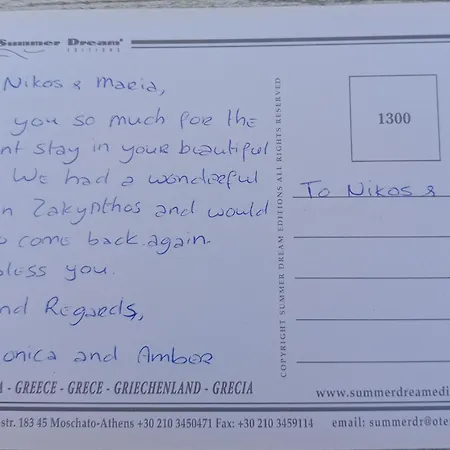 Summer Dream®
EDITIONS
Nikos & Maria,
you so much for the
nt stay in your beautiful
We had a wonderful
n Zakynthos and would
o come back again.
bless you.
nd Regards,
onica and Amber
A - GREECE - GRECE - GRIECHENLAND - GRECIA
str. 183 45 Moschato-Athens +30 210 3450471 Fax: +30 210 3459114
COPYRIGHT SUMMER DREAM EDITIONS ALL RIGHTS RESERVED
1300
To Nikos &
www.summerdreamedi
email: summerdr@ote